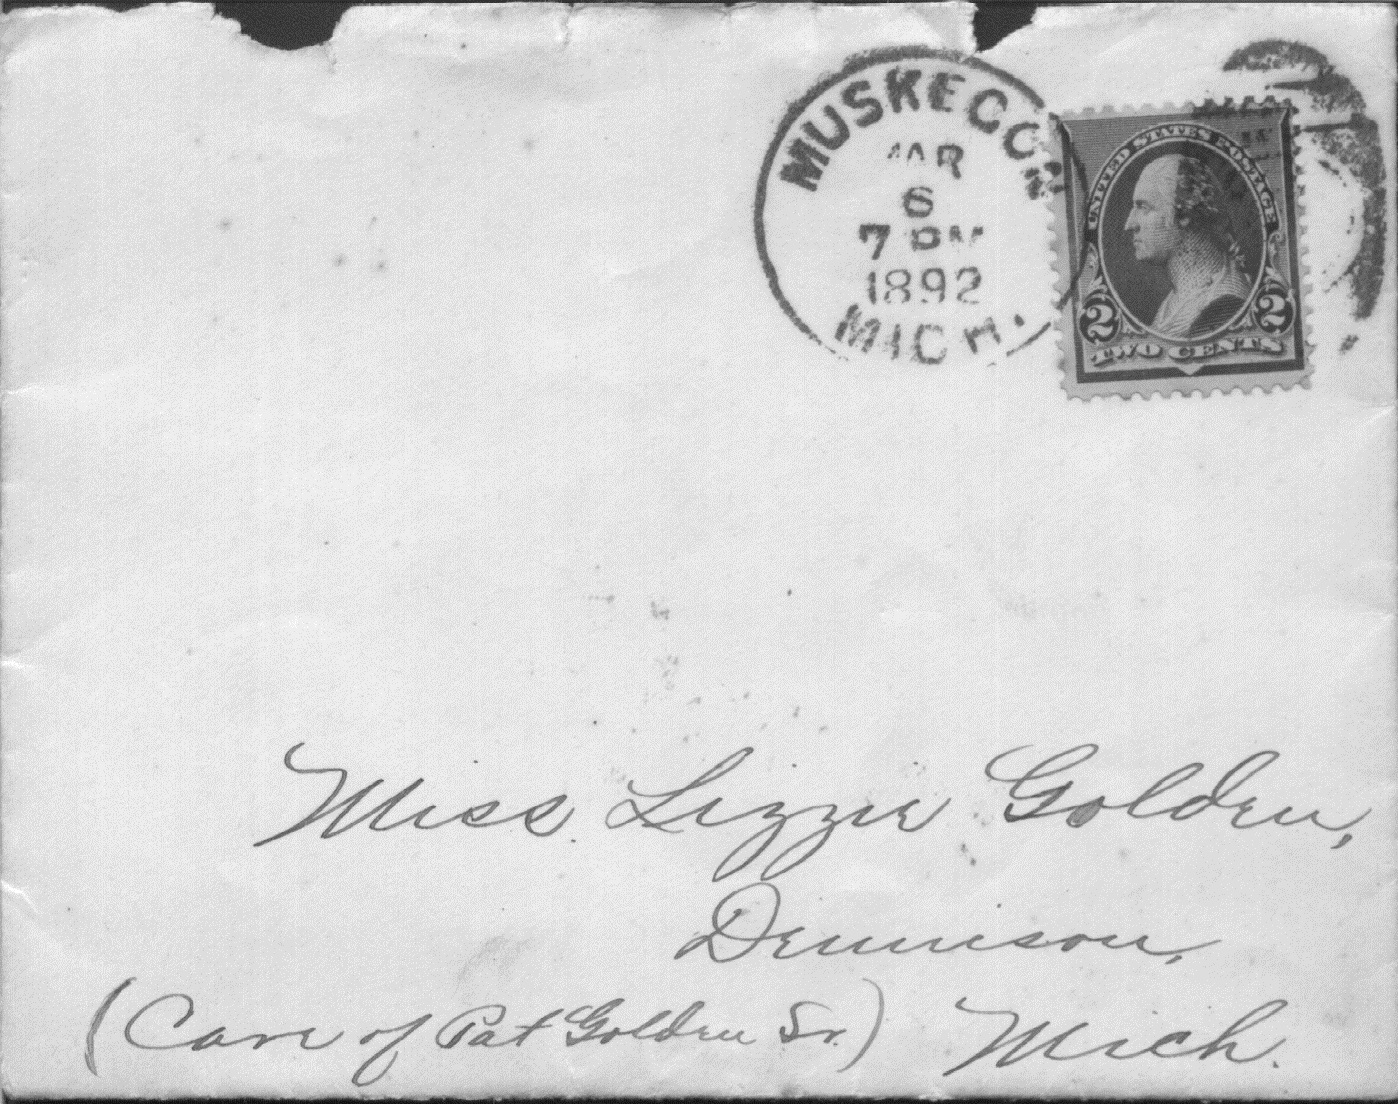 MUSKEGON
MAR
6
7 PM
1892
MICH.
UNITED STATES POSTAGE
2 2
TWO CENTS
Miss Lizzie Golden,
Dennison,
(Care of Pat Golden Sr.) Mich.